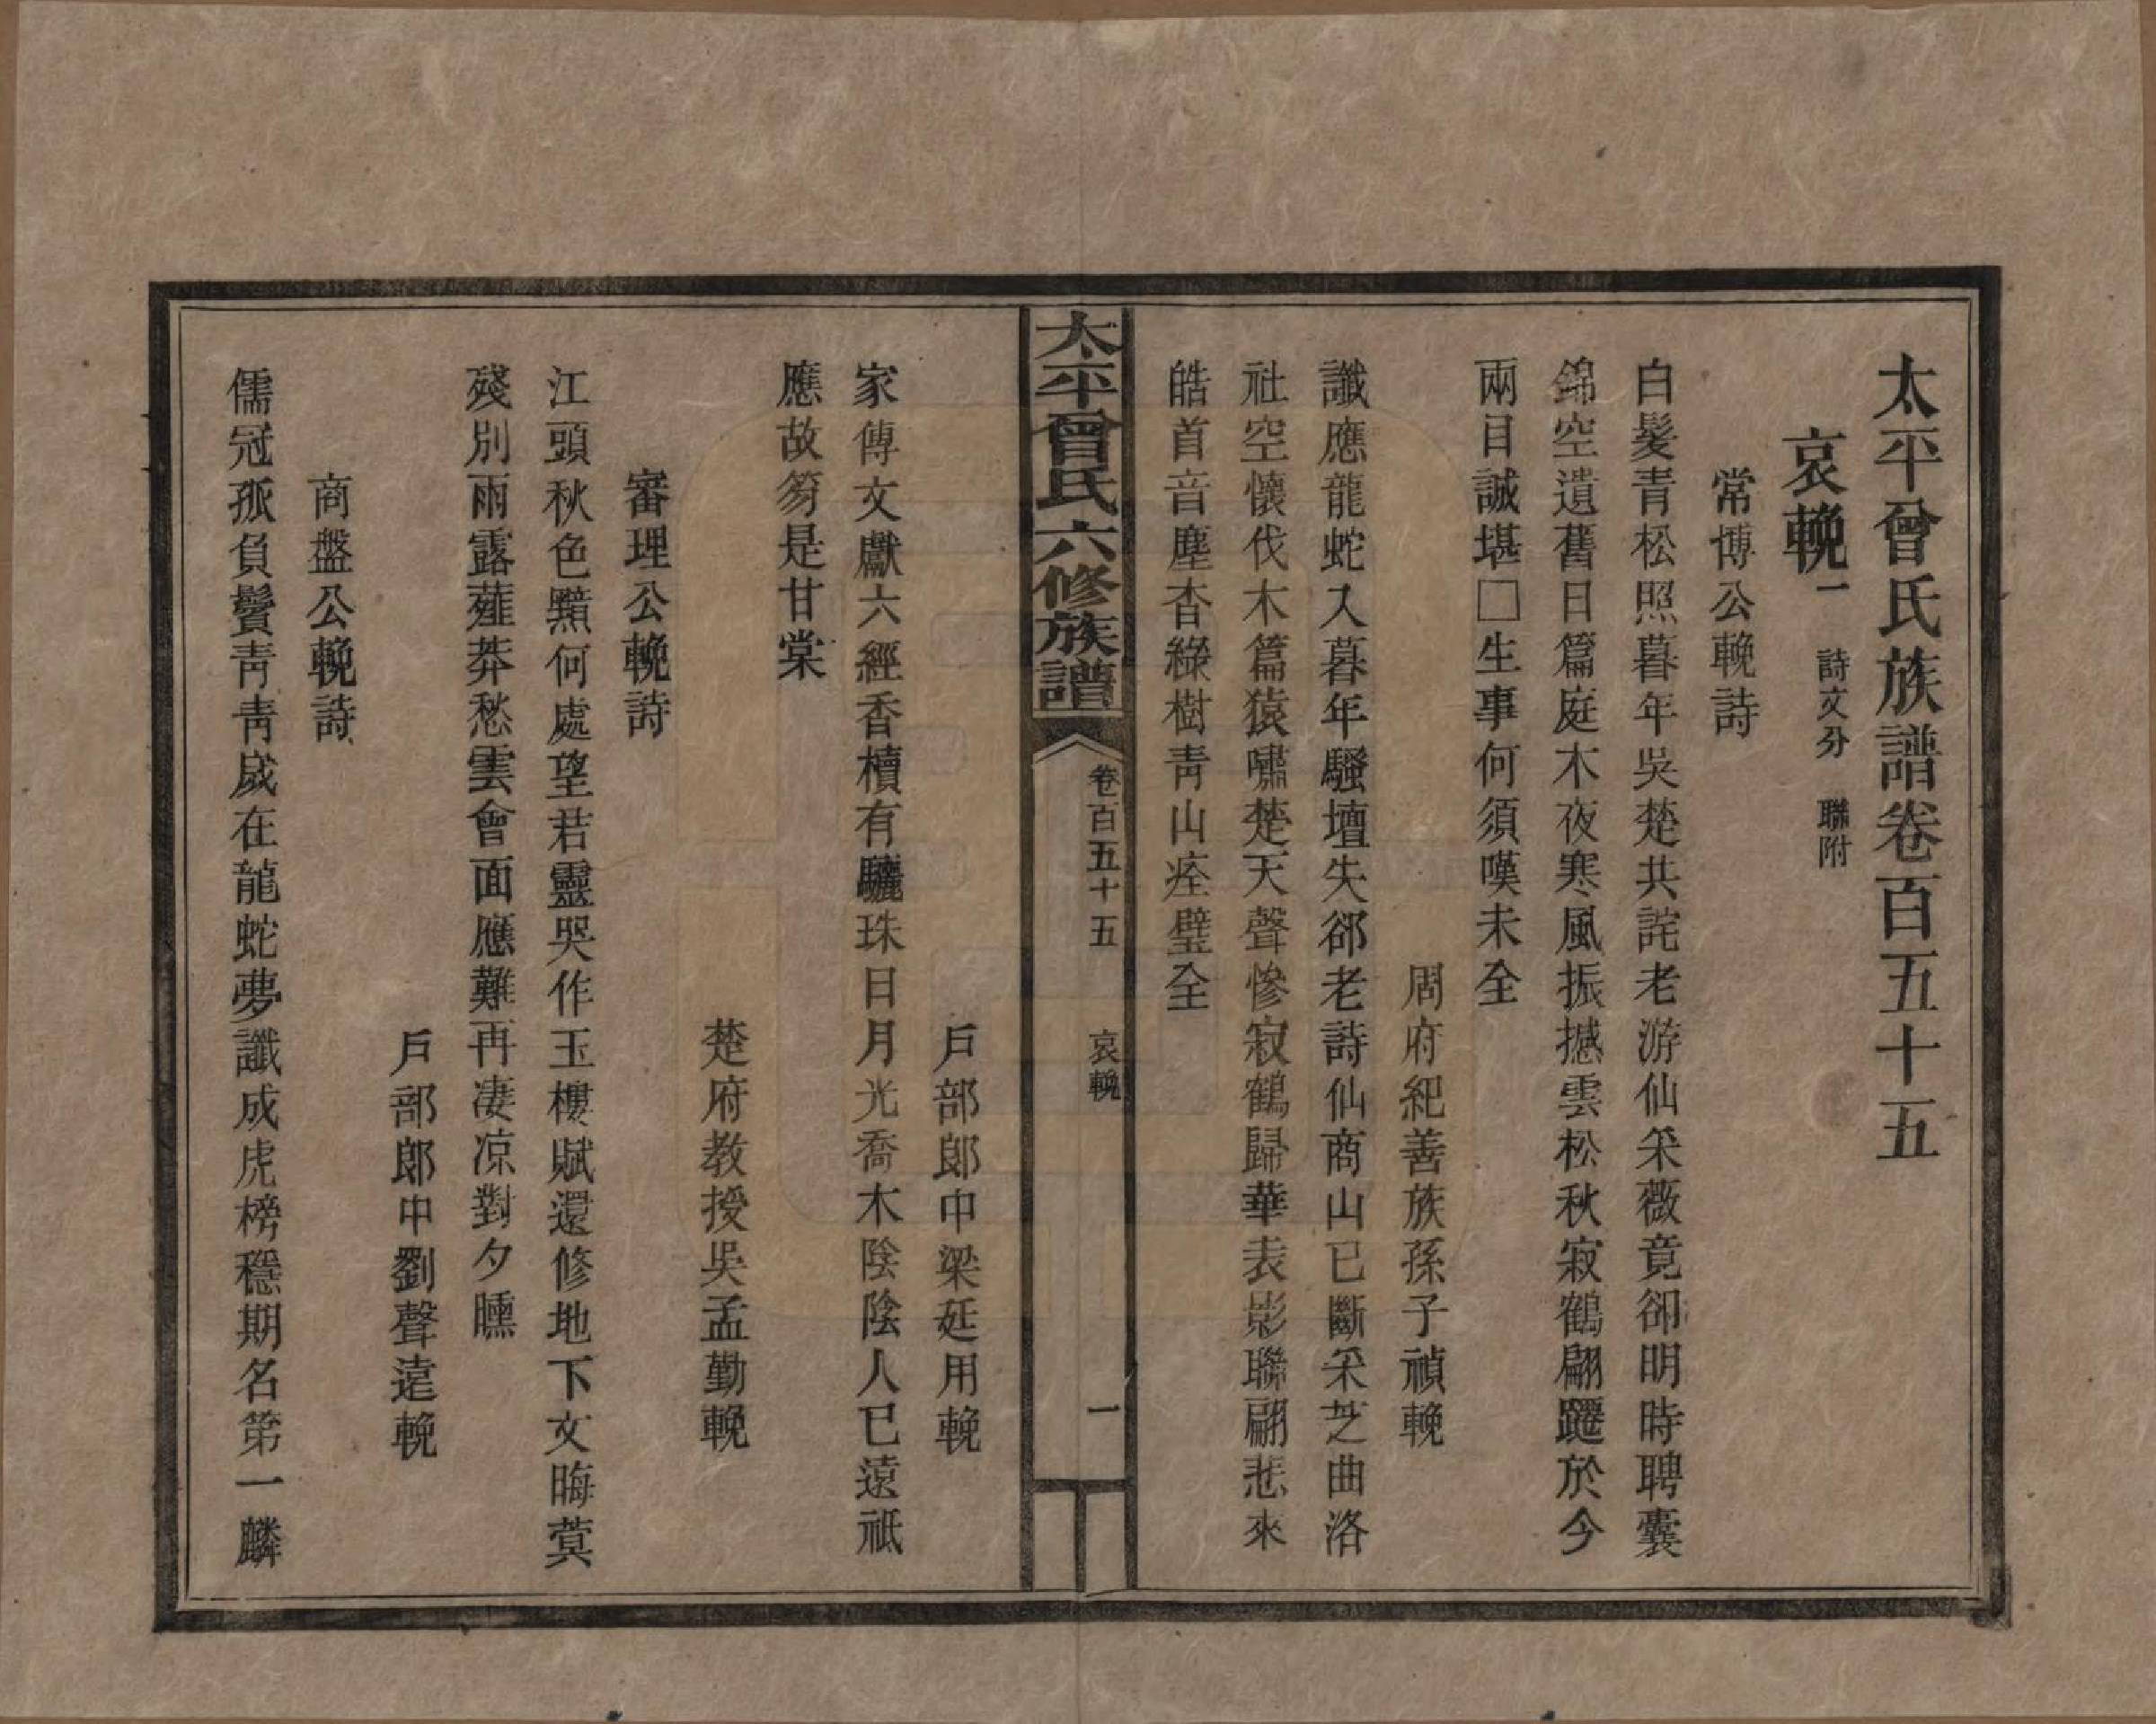 太平曾氏族譜卷百五十五
哀輓一 詩文分 聯附
常博公輓詩
白髮青松照暮年吳楚共詫老游仙采薇竟卻明時聘囊
錦空遺舊日篇庭木夜寒風振撼雲松秋寂鶴翩躚於今
兩目誠堪□生事何須嘆未全
周府紀善族孫子禎輓
讖應龍蛇入暮年騷壇失郤老詩仙商山已斷采芝曲洛
社空懷伐木篇猿嘯楚天聲慘寂鶴歸華表影聯翩悲來
皓首音塵杳綠樹青山痊璧全
太平曾氏六修族譜 卷百五十五 哀輓 一
戶部郎中梁廷用輓
家傳文獻六經香櫝有驪珠日月光喬木陰陰人已遠祗
應故笏是甘棠
楚府教授吳孟勤輓
審理公輓詩
江頭秋色黯何處望君靈哭作玉樓賦還修地下文晦蓂
殘別雨露薤莽愁雲會面應難再凄凉對夕曛
戶部郎中劉聲遠輓
商盤公輓詩
儒冠孤負鬢青青歲在龍蛇夢讖成虎榜穩期名第一麟